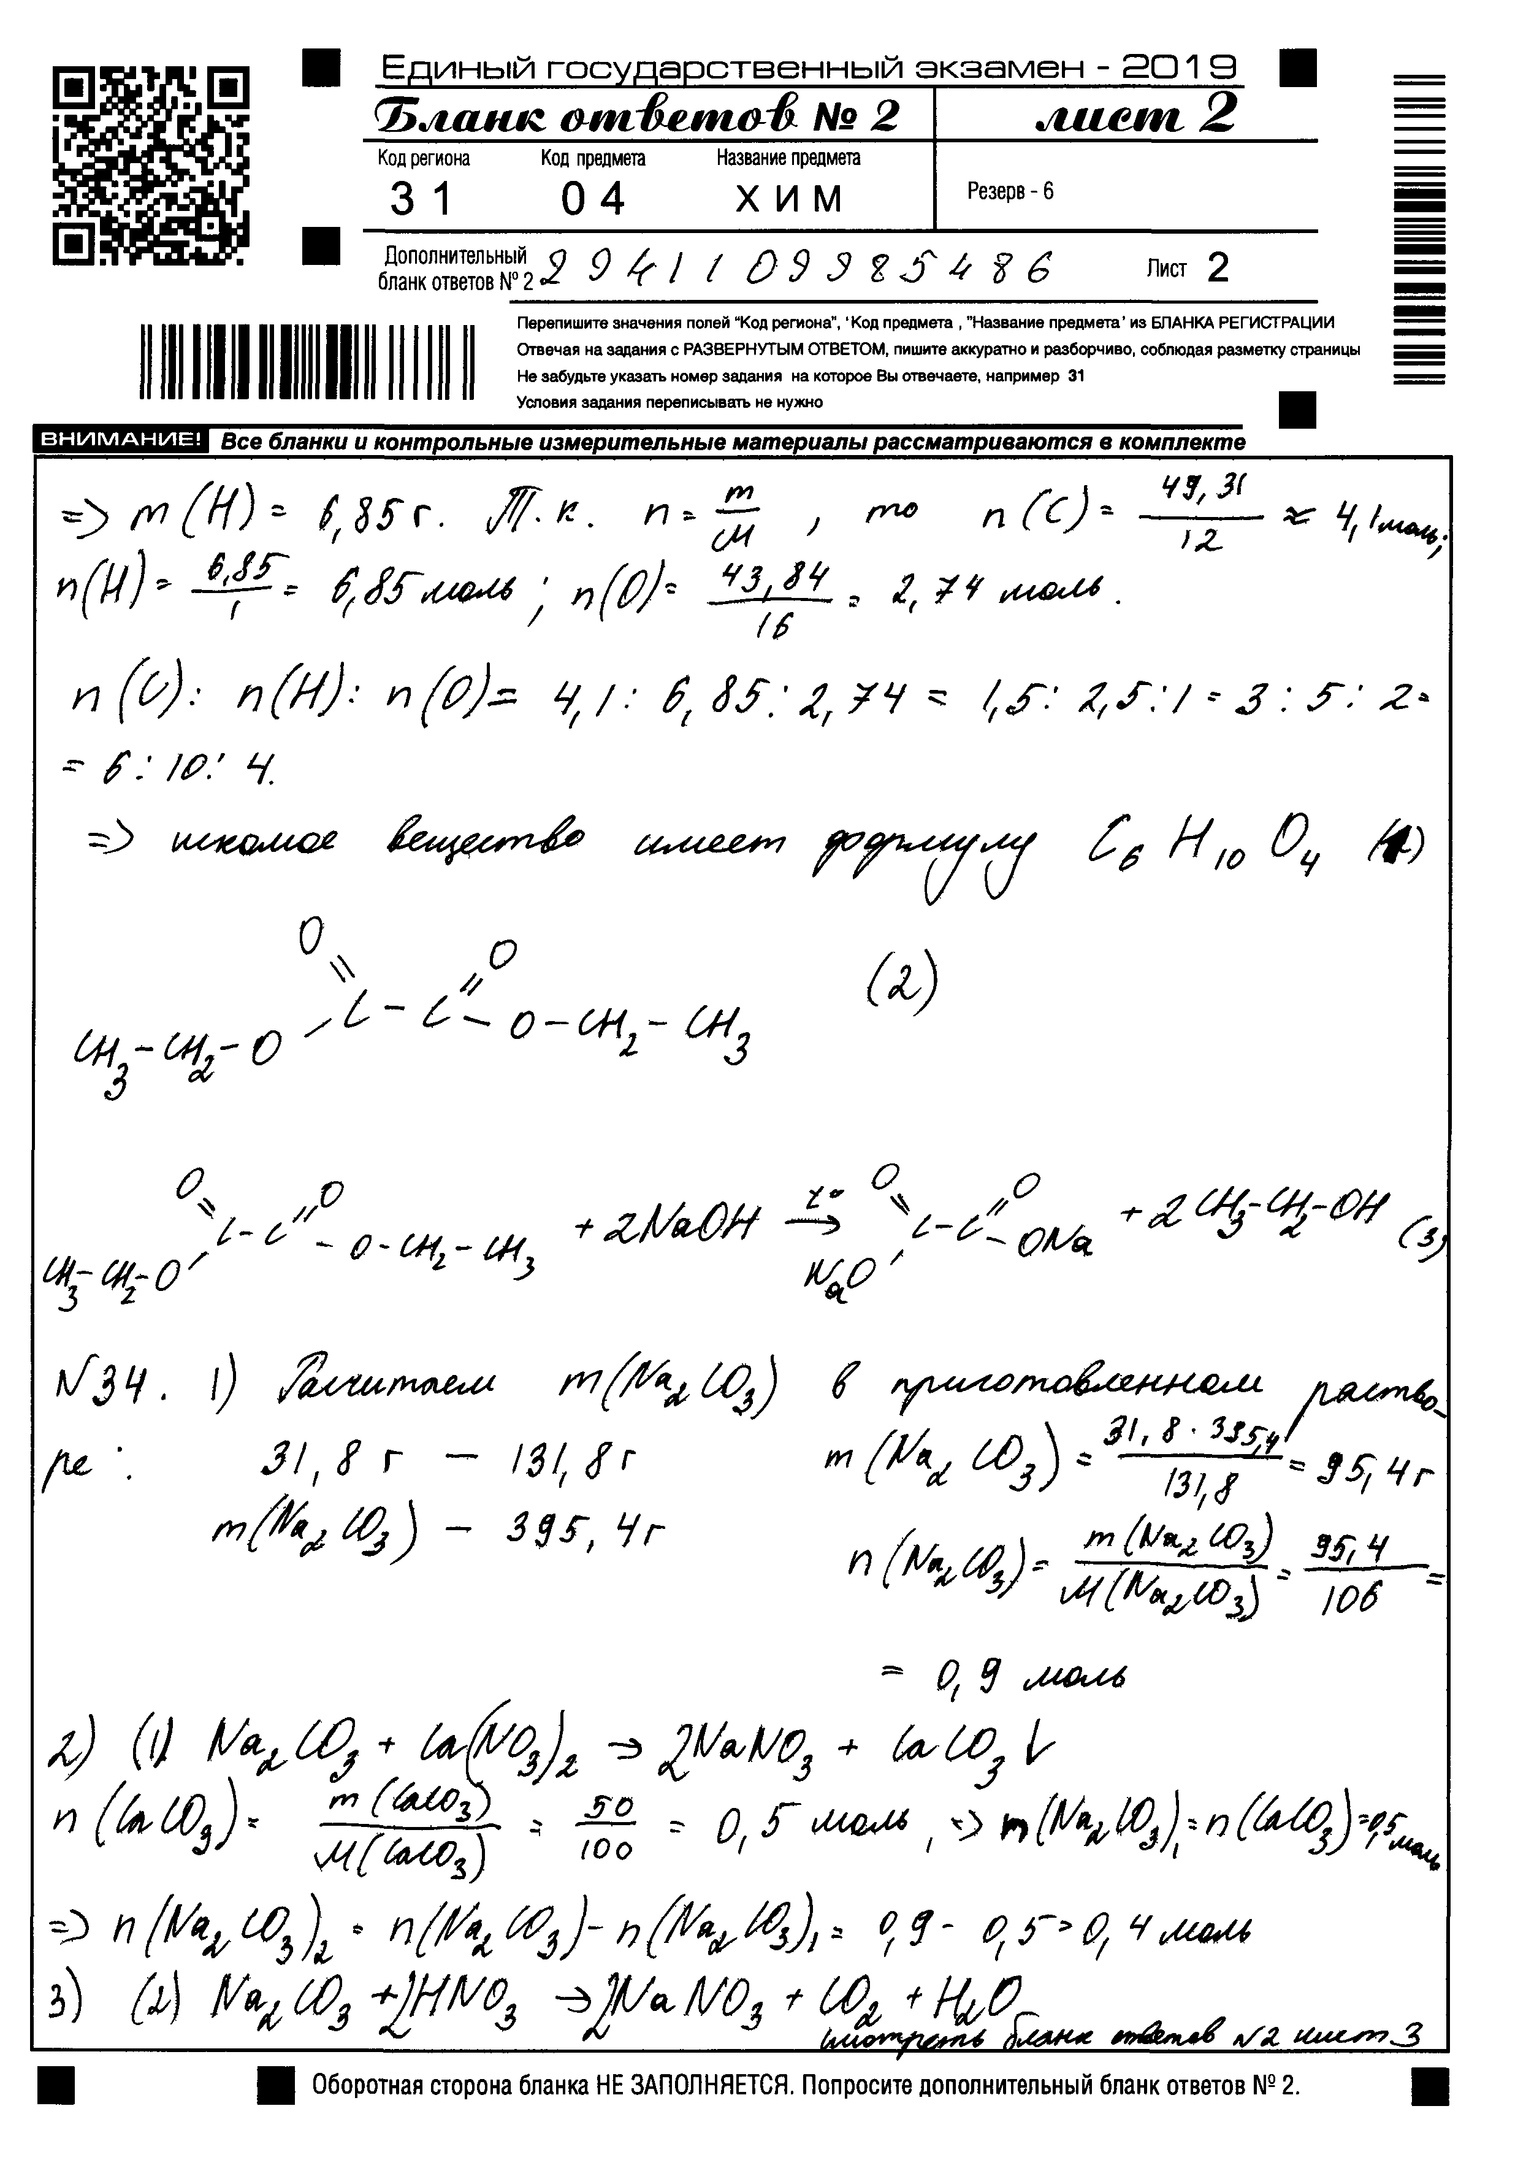 Единый государственный экзамен - 2019
Бланк ответов № 2 лист 2
Код региона Код предмета Название предмета
31 04 ХИМ Резерв - 6
Дополнительный
бланк ответов № 2 2941109985486 Лист 2
Перепишите значения полей "Код региона", 'Код предмета , "Название предмета' из БЛАНКА РЕГИСТРАЦИИ
Отвечая на задания с РАЗВЕРНУТЫМ ОТВЕТОМ, пишите аккуратно и разборчиво, соблюдая разметку страницы
Не забудьте указать номер задания на которое Вы отвечаете, например 31
Условия задания переписывать не нужно
ВНИМАНИЕ! Все бланки и контрольные измерительные материалы рассматриваются в комплекте
=> m(H) = 6,85 г. Т.к. n = m/M , то n(C) = 49,31/12 ≈ 4,1 моль;
n(H) = 6,85/1 = 6,85 моль ; n(O) = 43,84/16 = 2,74 моль.
n(C) : n(H) : n(O) = 4,1 : 6,85 : 2,74 = 1,5 : 2,5 : 1 = 3 : 5 : 2 =
= 6 : 10 : 4.
=> искомое вещество имеет формулу C6H10O4 (1)
O O (2)
CH3-CH2-O C - C O-CH2-CH3
O O + 2NaOH t° → O O + 2CH3-CH2-OH (3)
CH3-CH2-O C - C - O-CH2-CH3 NaO C - C ONa
N34. 1) Расчитаем m(Na2CO3) в приготовленном раство-
ре : 31,8 г — 131,8 г m(Na2CO3) = 31,8 · 395,4/131,8 = 95,4 г
m(Na2CO3) — 395,4 г n(Na2CO3) = m(Na2CO3)/M(Na2CO3) = 95,4/106 =
= 0,9 моль
2) (1) Na2CO3 + Ca(NO3)2 → 2NaNO3 + CaCO3↓
n(CaCO3) = m(CaCO3)/M(CaCO3) = 50/100 = 0,5 моль, => n(Na2CO3)1 = n(CaCO3) = 0,5 моль
=> n(Na2CO3)2 = n(Na2CO3) - n(Na2CO3)1 = 0,9 - 0,5 = 0,4 моль
3) (2) Na2CO3 + 2HNO3 → 2NaNO3 + CO2 + H2O
смотреть бланк ответов N2 лист 3
Оборотная сторона бланка НЕ ЗАПОЛНЯЕТСЯ. Попросите дополнительный бланк ответов № 2.